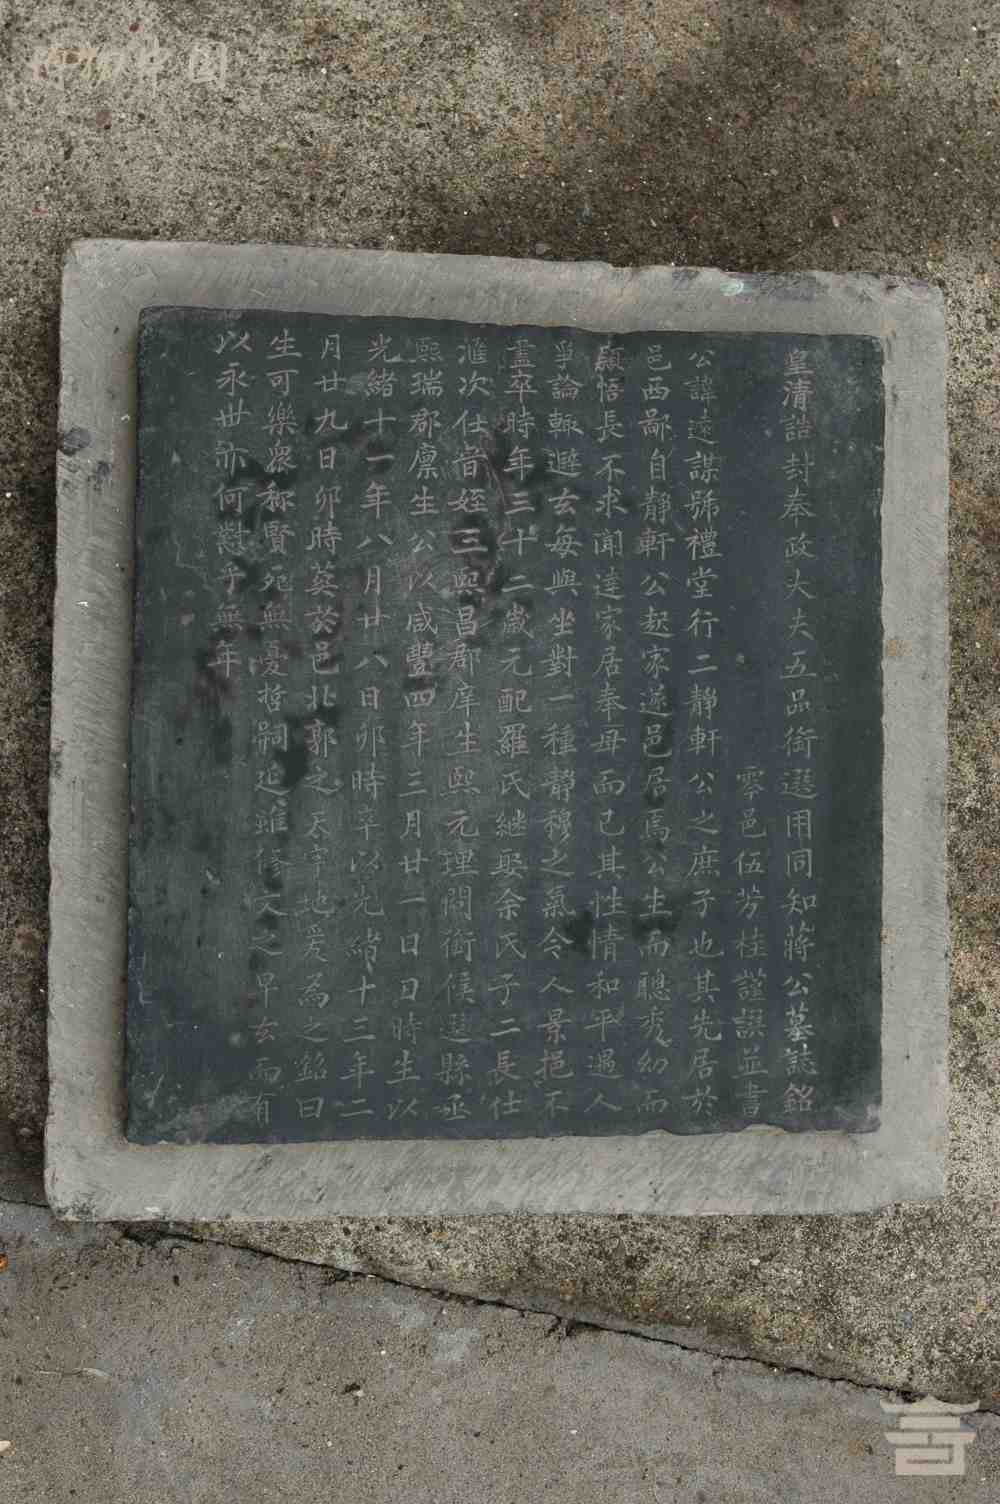 皇清誥封奉政大夫五品銜選用同知蔣公墓誌銘
雩邑伍芳桂謹譔並書
公諱遠謀號禮堂行二靜軒公之庶子也其先居於
邑西鄙自靜軒公起家遂邑居焉公生而聰秀幼而
穎悟長不求聞達家居奉母而已其性情和平遇人
爭論輒避去每與坐對一種靜穆之氣令人景挹不
盡卒時年三十二歲元配羅氏継娶余氏子二長仕
滙次仕晉姪三熙昌郡庠生熙元理問銜候選縣丞
熙瑞郡廪生公以咸豐四年三月廿一日日時生以
光緒十一年八月廿八日卯時卒以光緒十三年二
月廿九日卯時葵於邑北郭之天字地爰為之銘曰
生可樂衆称賢死無憂哲嗣延雖修文之早去而有
以永世亦何懟乎無年